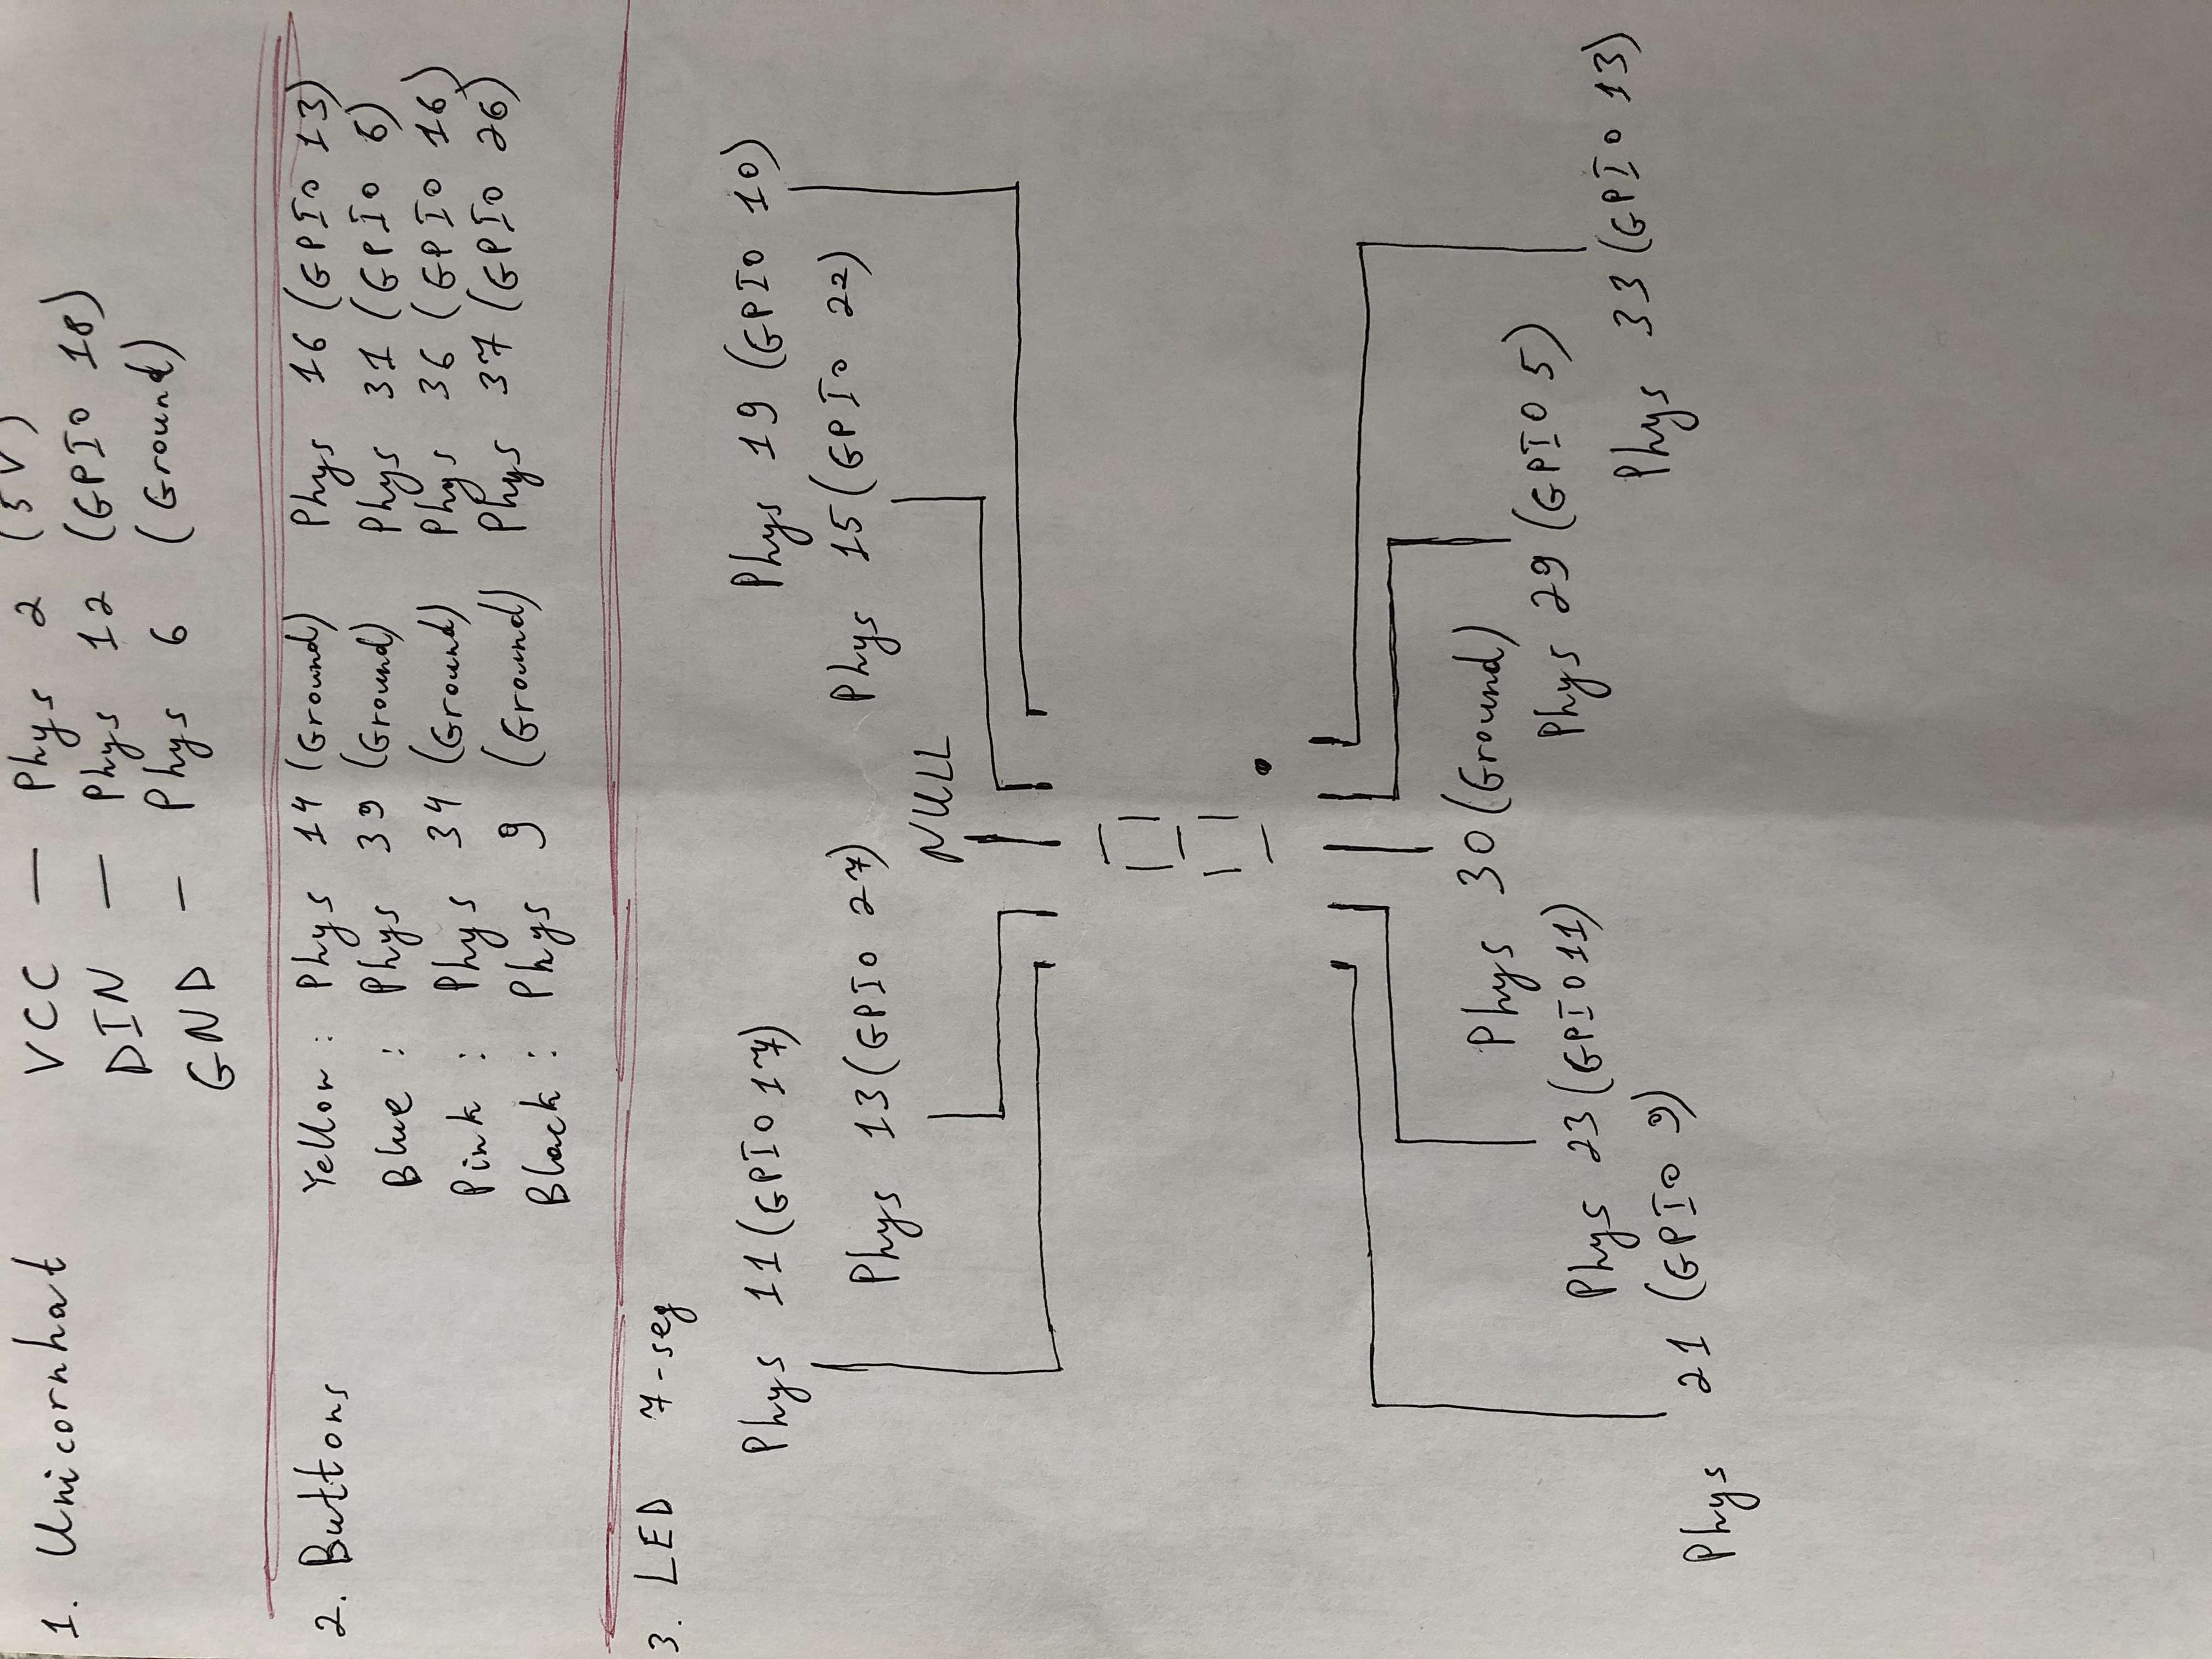 1. Unicornhat VCC — Phys 2 (5V)
DIN — Phys 12 (GPIO 18)
GND — Phys 6 (Ground)
2. Buttons Yellow : Phys 14 (Ground) Phys 16 (GPIO 13)
Blue : Phys 39 (Ground) Phys 31 (GPIO 6)
Pink : Phys 34 (Ground) Phys 36 (GPIO 16)
Black : Phys 9 (Ground) Phys 37 (GPIO 26)
3. LED 7-seg
Phys 11 (GPIO 17) Phys 19 (GPIO 10)
Phys 13 (GPIO 27) Phys 15 (GPIO 22)
NULL
Phys 30 (Ground)
Phys 23 (GPIO 11) Phys 29 (GPIO 5)
Phys 21 (GPIO 9) Phys 33 (GPIO 13)